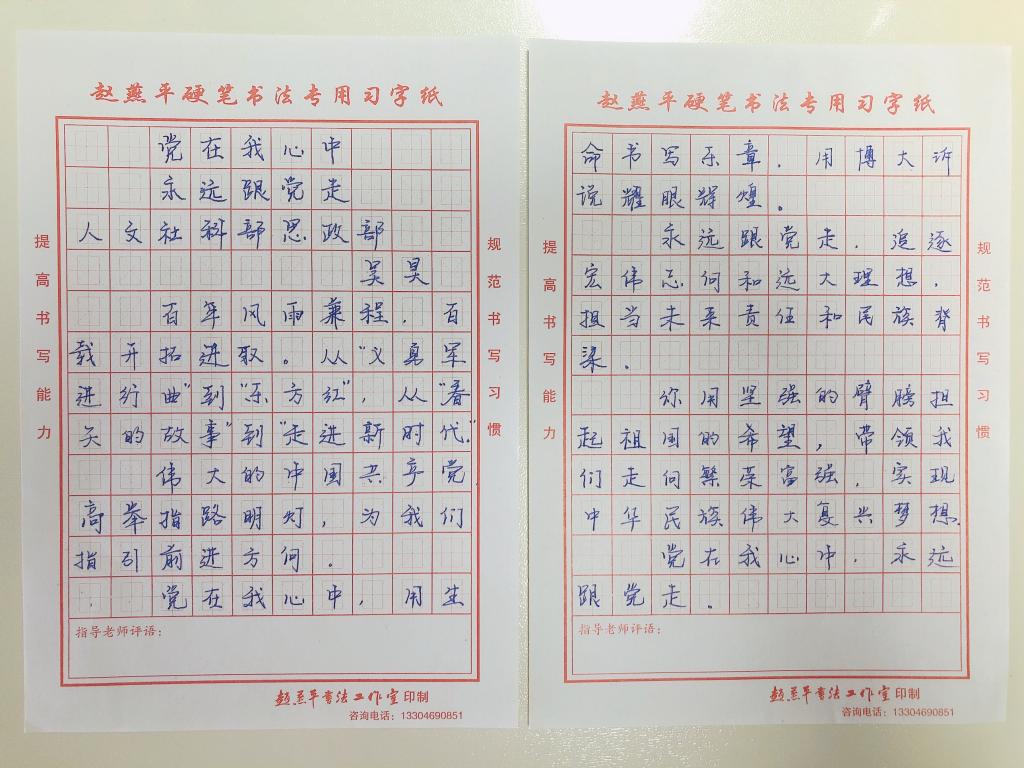 赵燕平硬笔书法专用习字纸
提高书写能力
规范书写习惯
党在我心中
永远跟党走
人文社科部思政部
吴昊
百年风雨兼程，百
载开拓进取。从“义勇军
进行曲”到“东方红”，从“春
天的故事”到“走进新时代。”
伟大的中国共产党
高举指路明灯，为我们
指引前进方向。
党在我心中，用生
指导老师评语：
赵燕平书法工作室印制
咨询电话：13304690851
赵燕平硬笔书法专用习字纸
提高书写能力
规范书写习惯
命书写乐章，用博大诉
说耀眼辉煌。
永远跟党走，追逐
宏伟志向和远大理想，
担当未来责任和民族脊
梁。
你用坚强的臂膀担
起祖国的希望，带领我
们走向繁荣富强，实现
中华民族伟大复兴梦想。
党在我心中，永远
跟党走。
指导老师评语：
赵燕平书法工作室印制
咨询电话：13304690851